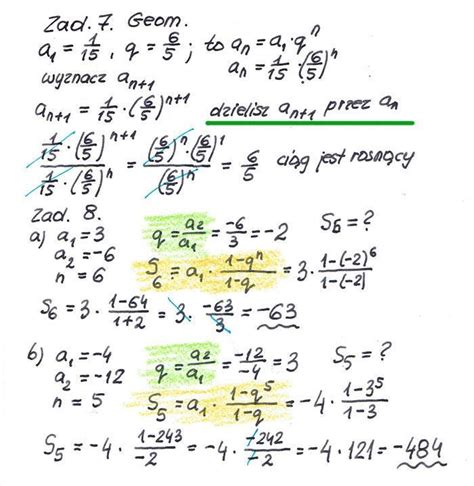 Zad. 7. Geom.
a₁ = 1/15, q = 6/5; to aₙ = a₁·qⁿ
aₙ = 1/15·(6/5)ⁿ
wyznacz aₙ₊₁
aₙ₊₁ = 1/15·(6/5)ⁿ⁺¹ dzielisz aₙ₊₁ przez aₙ
(1/15·(6/5)ⁿ⁺¹)/(1/15·(6/5)ⁿ) = ((6/5)ⁿ·(6/5)¹)/(6/5)ⁿ = 6/5 ciąg jest rosnący
Zad. 8.
a) a₁ = 3 q = a₂/a₁ = -6/3 = -2 S₆ = ?
a₂ = -6
n = 6 S₆ = a₁·(1-qⁿ)/(1-q) = 3·(1-(-2)⁶)/(1-(-2)
S₆ = 3·(1-64)/(1+2) = 3·(-63)/3 = -63
b) a₁ = -4 q = a₂/a₁ = -12/-4 = 3 S₅ = ?
a₂ = -12
n = 5 S₅ = a₁·(1-q⁵)/(1-q) = -4·(1-3⁵)/(1-3)
S₅ = -4·(1-243)/-2 = -4·(-242)/-2 = -4·121 = -484